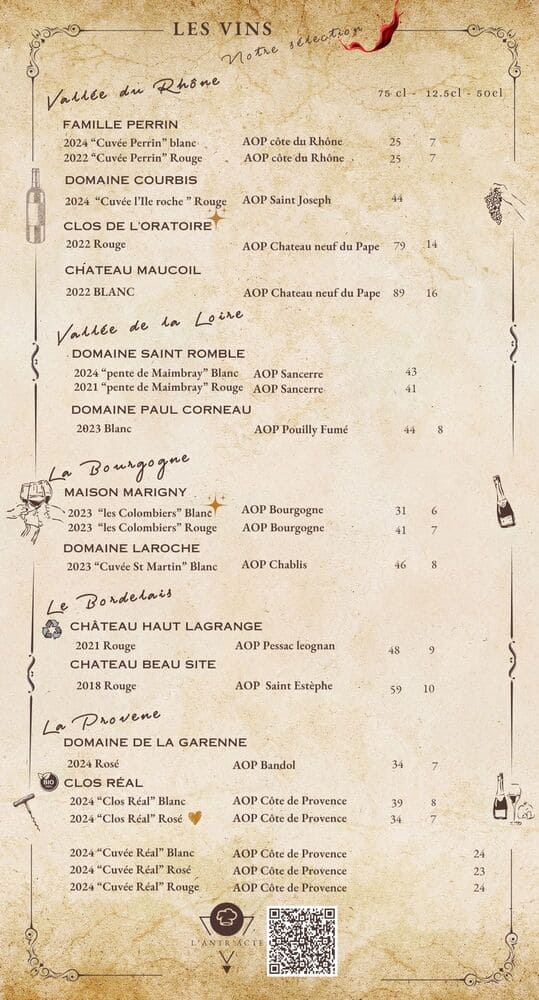 LES VINS
Notre sélection
Vallée du Rhône
75 cl - 12.5cl - 50cl
FAMILLE PERRIN
2024 “Cuvée Perrin” blanc AOP côte du Rhône 25 7
2022 “Cuvée Perrin” Rouge AOP côte du Rhône 25 7
DOMAINE COURBIS
2024 “Cuvée l’Ile roche ” Rouge AOP Saint Joseph 44
CLOS DE L’ORATOIRE
2022 Rouge AOP Chateau neuf du Pape 79 14
CHATEAU MAUCOIL
2022 BLANC AOP Chateau neuf du Pape 89 16
Vallée de la Loire
DOMAINE SAINT ROMBLE
2024 “pente de Maimbray” Blanc AOP Sancerre 43
2021 “pente de Maimbray” Rouge AOP Sancerre 41
DOMAINE PAUL CORNEAU
2023 Blanc AOP Pouilly Fumé 44 8
La Bourgogne
MAISON MARIGNY
2023 “les Colombiers” Blanc AOP Bourgogne 31 6
2023 “les Colombiers” Rouge AOP Bourgogne 41 7
DOMAINE LAROCHE
2023 “Cuvée St Martin” Blanc AOP Chablis 46 8
Le Bordelais
CHÂTEAU HAUT LAGRANGE
2021 Rouge AOP Pessac leognan 48 9
CHATEAU BEAU SITE
2018 Rouge AOP Saint Estèphe 59 10
La Provene
DOMAINE DE LA GARENNE
2024 Rosé AOP Bandol 34 7
BIO CLOS RÉAL
2024 “Clos Réal” Blanc AOP Côte de Provence 39 8
2024 “Clos Réal” Rosé AOP Côte de Provence 34 7
2024 “Cuvée Réal” Blanc AOP Côte de Provence 24
2024 “Cuvée Réal” Rosé AOP Côte de Provence 23
2024 “Cuvée Réal” Rouge AOP Côte de Provence 24
L’ANTR’ACTE